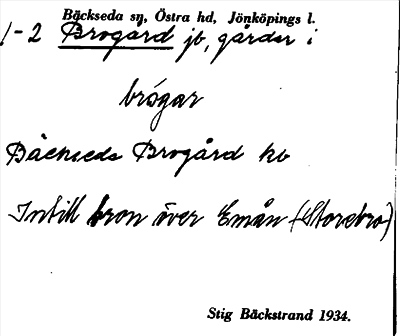 Bäckseda sn, Östra hd, Jönköpings l.
1-2 Brogård jb, gårdar i
brógar
Bäckseds Brogård kb
Intill bron över Emån (Storebro)
Stig Bäckstrand 1934.